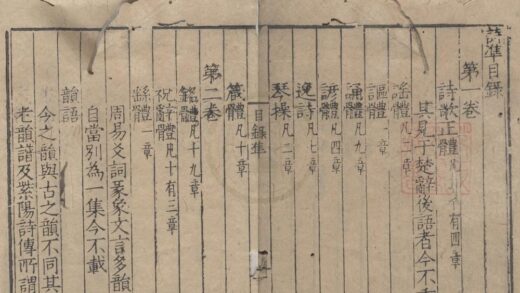 詩準目錄
第一卷
詩歌正體凡 有四章
其見于楚辭後語者今不
謠體凡二 章
謳體一章
誦體凡九章
諺體凡四章
逸詩凡七章
琴操凡二章
箴體凡十章
目錄準
第二卷
銘體凡十九章
祝辭體凡十有三章
繇體一章
周易爻詞彖象文言多韻
自當別為一集今不載
韻語
今之韻與古之韻不同其
老韻譜及紫陽詩傳所謂